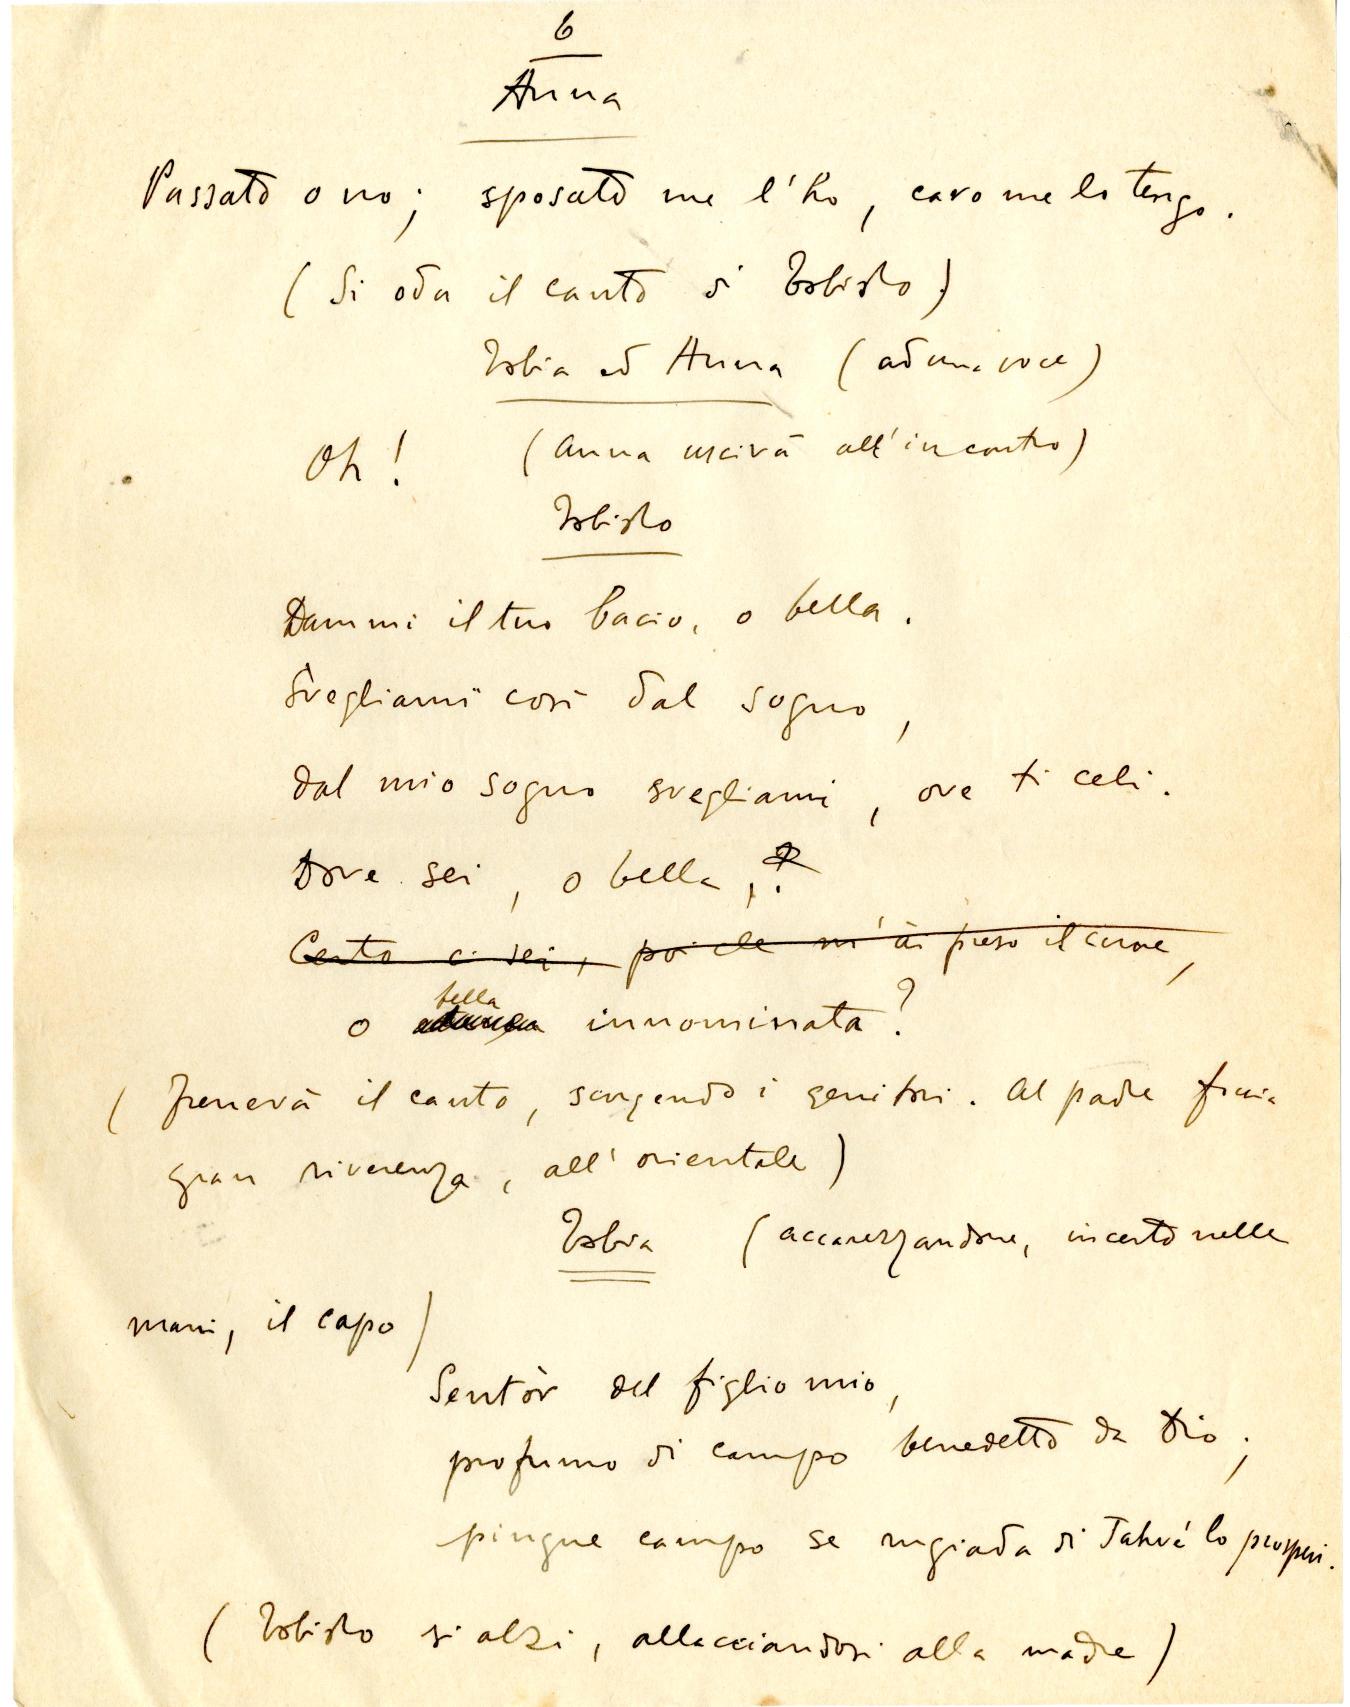 6
Anna
Passato o no; sposato me l'ho, caro me lo tengo.
(Si oda il canto di Tobiolo)
Tobia ed Anna (ad una voce)
Oh! (Anna uscirà all'incontro)
Tobiolo
Dammi il tuo bacio, o bella.
Svegliami così dal sogno,
dal mio sogno svegliami, ove ti celi.
Dove sei, o bella, ?
Certo ci sei, poi che m'ài preso il cuore,
o bella innominata?
(Frenerà il canto, scorgendo i genitori. Al padre farà
gran riverenza, all'orientale)
Tobia (accarezzandone, incerto nelle
mani, il capo)
Sentòr del figlio mio,
profumo di campo benedetto da Dio;
pingue campo se rugiada di Jahvé lo prosperi.
(Tobiolo si alzi, allacciandosi alla madre)